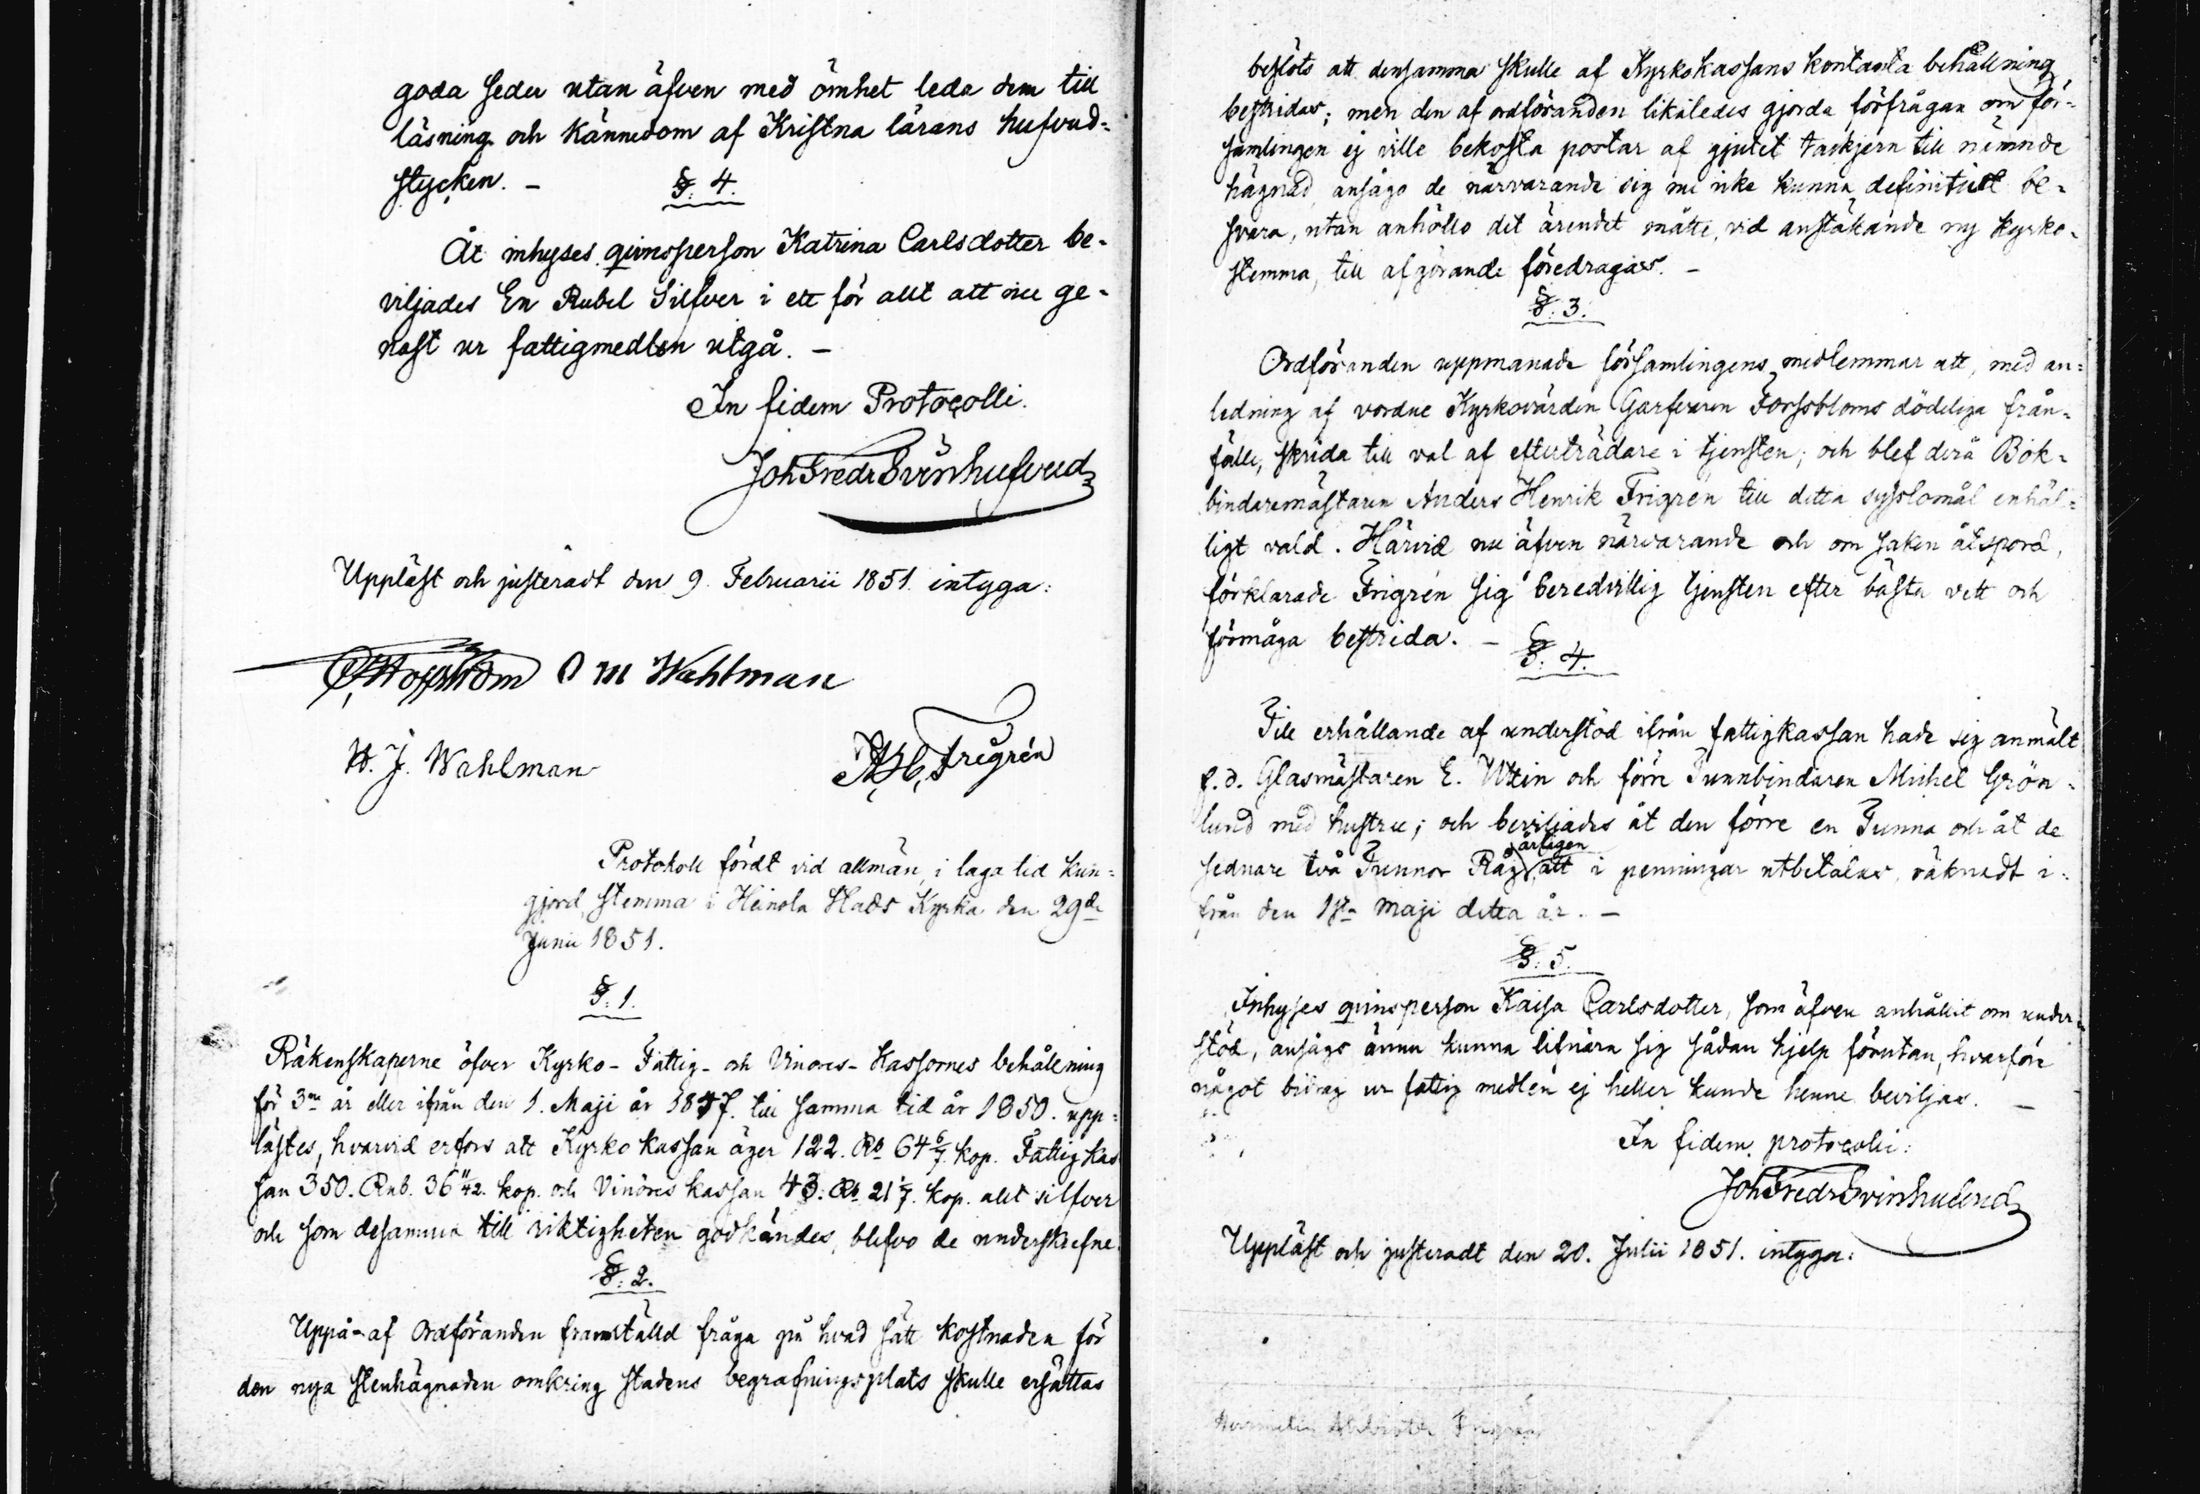 goda seder utan äfven med ömhet leda dem till
läsning och kännedom af Kristna lärans hufvud=
stycken. –
§. 4.
Åt inhyses qvinsperson Katrina Carlsdotter be=
viljades En Rubel Silfver i ett för allt att nu ge=
nast ur fattigmedlen utgå. –
In fidem Protocolli.
Joh Fredr Svinhufvud
Uppläst och justeradt den 9. Februarii 1851. intyga:
O M Wahlman
W. J. Wahlman
A. H. Frigrén
Protokoll fördt vid allmän, i laga tid kun=
gjord, stemma i Heinola Stads Kyrka den 29de
Junii 1851.
§. 1.
Räkenskaperne öfver Kyrko- Fattig- och Vinöres- Kassornes behållning
för 3ne år eller ifrån den 1. Maji år 1847. till samma tid år 1850. upp=
lästes, hvarvid erfors att Kyrko kassan äger 122. Rb 64 6/7. kop. Fattig kas
san 350. Rub. 36 11/42. kop. och Vinöres kassan 43. Rb 21 1/7. kop. allt silfver
och som desamma till riktigheten godkändes, blefvo de underskrefne.
§. 2.
Uppå af Ordföranden framställd fråga på hvad sätt kostnaden för
den nya stenhägnaden omkring stadens begrafningsplats skulle ersättas
beslöts att densamma skulle af Kyrkokassans kontanta behållning
bestridas; men den af ordföranden likaledes gjorda förfrågan om för=
samlingen ej ville bekosta portar af gjutet tackjern till nämnde
hägnad, ansågo de närvarande sig nu icke kunna definitivt be=
svara, utan anhöllo det ärendet måtte, vid anstäkande ny kyrko=
stemma, till afgörande föredragas. –
§. 3.
Ordföranden uppmanade församlingens medlemmar att, med an=
ledning af vordne Kyrkovärden Garfvaren Forssbloms dödeliga från=
fälle, skrida till val af efterträdare i tjensten; och blef derå Bok=
bindaremästaren Anders Henrik Frigrén till detta sysslomål enhäl=
ligt vald. Härvid nu äfven närvarande och om saken åtspord,
förklarade Frigrén sig beredvillig tjensten efter bästa vett och
förmåga bestrida. –
§. 4.
Till erhållande af understöd ifrån fattigkassan hade sig anmält
f. d. Glasmästaren E. Uttin och förre Tunnbindaren Michel Grön=
lund med hustru; och beviljades åt den förre en Tunna och åt de
sednare två Tunnor Råg årligen att i penningar utbetalas, räknadt i=
från den 1sta Maji detta år. –
§. 5.
Inhyses qvinsperson Kaisa Carlsdotter, som äfven anhållit om under=
stöd, ansågs ännu kunna lifnära sig sådan hjelp förutan, hvarföre
något bidrag ur fattig medlen ej heller kunde henne beviljas. –
In fidem protocolli:
Joh Fredr Svinhufvud
Uppläst och justeradt den 20. Julii 1851. intyga: